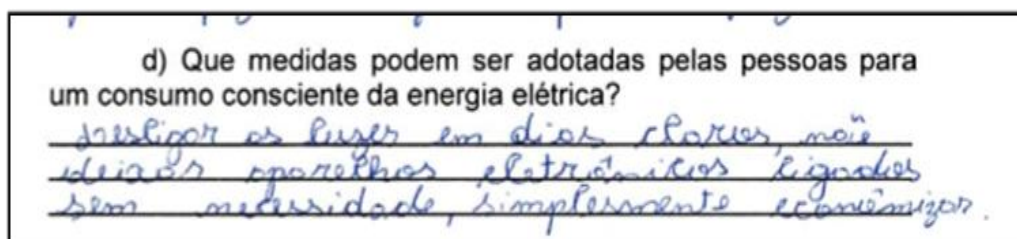 d) Que medidas podem ser adotadas pelas pessoas para
um consumo consciente da energia elétrica?
desligar as luzes em dias claros, não
deixar aparelhos eletrônicos ligados
sem necessidade, simplesmente econômizar.